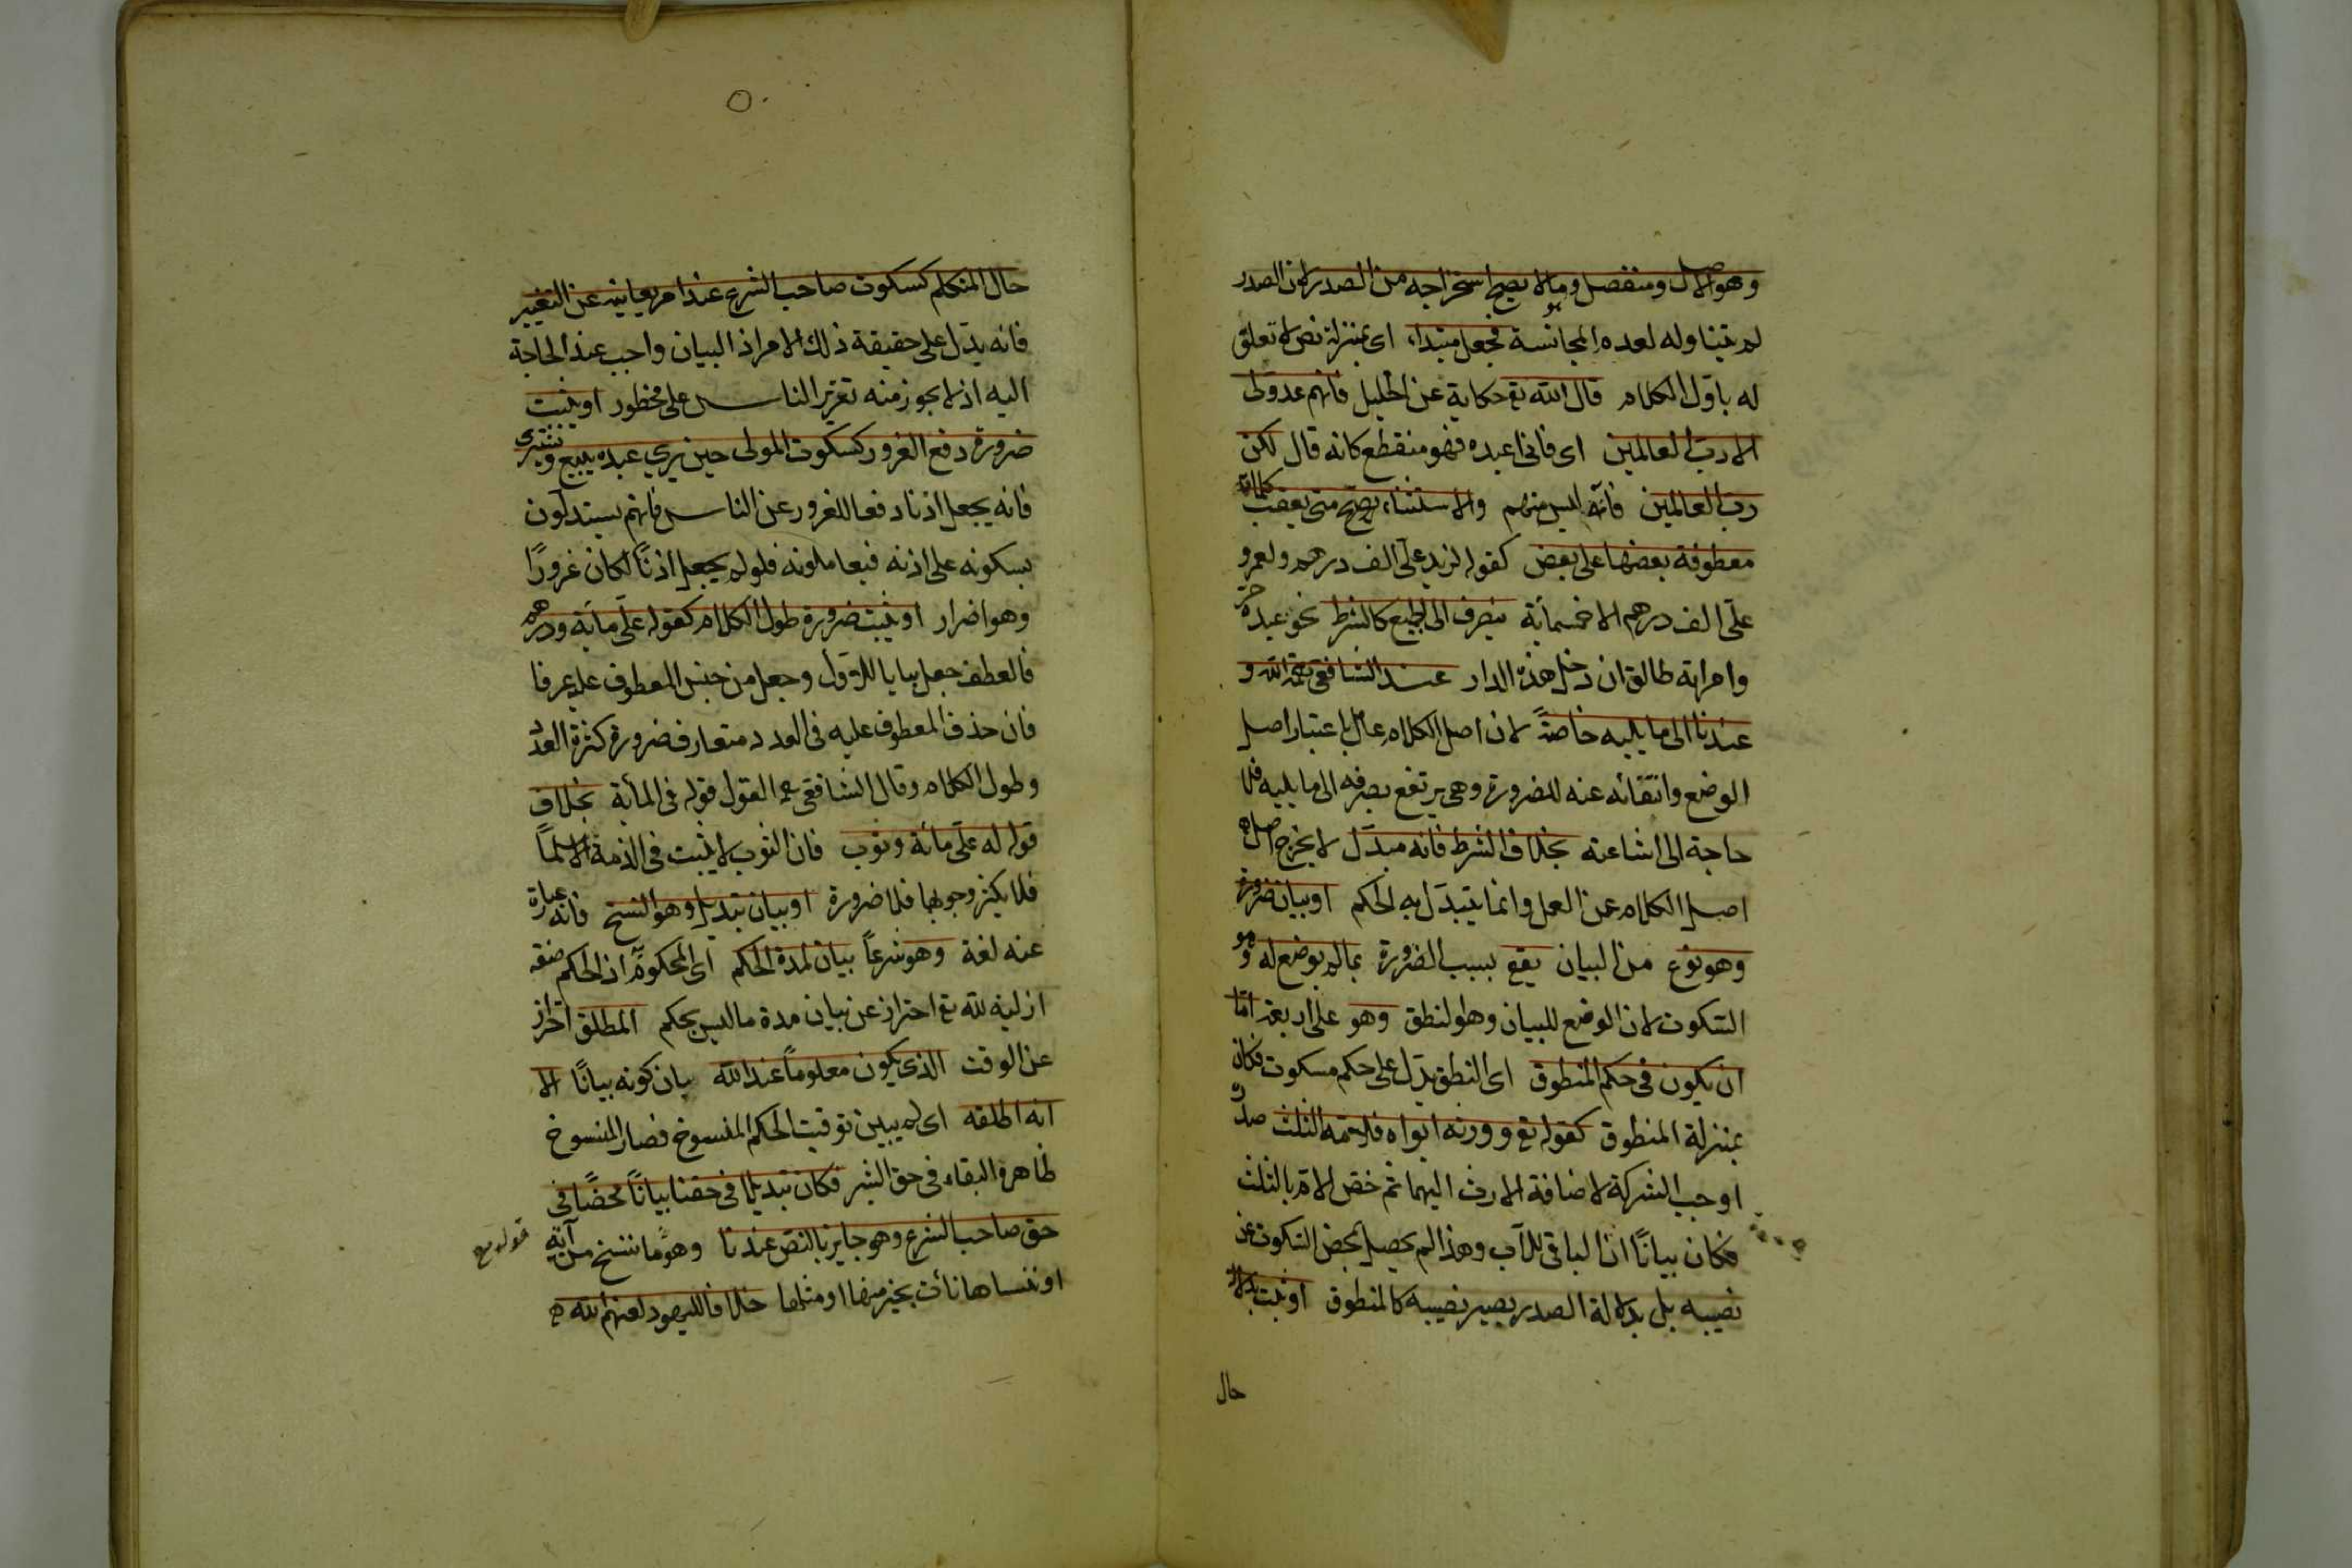 وهو الاصل ومنفصل وهو ما لا يصح استخراجه من الصدر لان الصدر
لم يتناوله لعدم المجانسة فجعل مبتداء اى بمنزلة نص لا تعلق
له باول الكلام قال الله تع حكاية عن الخليل فانهم عدو لى
الا رب العالمين اى فانى اعبده فهو منقطع كانه قال لكن
رب العالمين فانه ليس منهم والاستثناء يصح متى يعقب كلمات
معطوفة بعضها على بعض كقوله لزيد علىّ الف درهم ولعمرو
علىّ الف درهم الا خمسمائة ينصرف الى الجميع كالشرط نحو عبده حر
وامراته طالق ان دخل هذه الدار عند الشافعى رحمه الله و
عندنا الى ما يليه خاصةً لان اصل الكلام عامل باعتبار اصل
الوضع وانتفائه عنه للضرورة وهى يرتفع بصرفه الى ما يليه فلا
حاجة الى اشاعته بخلاف الشرط فانه مبدّل لا يخرج اصل
اصل الكلام عن العمل وانما يتبدّل به الحكم او بيان ضرورة
وهو نوع من البيان يقع بسبب الضرورة بما لم يوضع له وهو
السكوت لان الوضع للبيان وهو النطق وهو على اربعة اما
ان يكون فى حكم المنطوق اى النطق يدل على حكم مسكوت فكان
بمنزلة المنطوق كقوله تع وورثه ابواه فلامه الثلث صدر
اوجب الشركة لاضافة الارث اليهما ثم خص الام بالثلث
فكان بيانًا ان الباقى للاب وهذا لم يحصل بمحض السكوت عن
نصيبه بل بدلالة الصدر يصير نصيبه كالمنطوق او يثبت بدلالة
حال
حال المتكلم كسكوت صاحب الشرع عند امر يعاينه عن التغيير
فانه يدّل على حقيقة ذلك الامر اذ البيان واجب عند الحاجة
اليه اذ لا يجوز منه تقرير الناس على محظور او يثبت
ضرورة دفع الغرور كسكوت المولى حين يرى عبده يبيع ويشترى
فانه يجعل اذنا دفعا للغرور عن الناس فانهم يستدلون
بسكوته على اذنه فيعاملونه فلو لم يجعل اذنًا لكان غرورًا
وهو اضرار او يثبت ضرورة طول الكلام كقوله علىّ مائة ودرهم
فالعطف جعل بيانا للاول وجعل من جنس المعطوف عليه عرفا
فان حذف المعطوف عليه فى العدد متعارف ضرورة كثرة العدد
وطول الكلام وقال الشافعى القول قوله فى المائة بخلاف
قوله له علىّ مائة وثوب فان الثوب لا يثبت فى الذمة الا سلمًا
فلا يكثر وجوبها فلا ضرورة او بيان تبديل وهو النسخ فانه عبارة
عنه لغة وهو شرعًا بيان لمدة الحكم اى المحكوم اذ الحكم صفة
ازلية لله تع احتراز عن بيان مدة ما ليس بحكم المطلق احتراز
عن الوقت الذى يكون معلومًا عند الله بيان كونه بيانًا الا
انه اطلقه اى لم يبين توقيت الحكم المنسوخ فصار المنسوخ
ظاهره البقاء فى حق البشر فكان تبديلا فى حقنا بيانًا محضًا فى
حق صاحب الشرع وهو جايز بالنص عندنا وهو ما ننسخ من آية
قوله تع
او ننساها نأت بخير منها او مثلها خلافا لليهود لعنهم الله